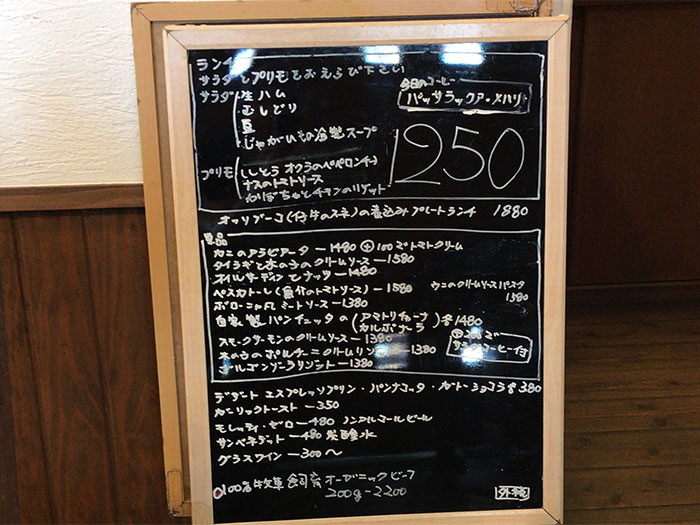 ランチ
サラダとプリモをおえらび下さい
今日のコーヒー
サラダ 生ハム
パッサラックア・メハリ
むしどり
豆
じゃがいもの冷製スープ
1250
プリモ ししとう オクラのペペロンチーノ
ナスのトマトソース
かぼちゃとチキンのリゾット
オッソブーコ(仔牛のスネ)の煮込みプレートランチ 1880
単品
カニのアラビアータ ー1480 ⊕100でトマトクリーム
タイラギと木の子のクリームソースー1580
オイルサーディンとナッツー1480
ペスカトーレ(魚介のトマトソース)ー1580
ウニのクリームソースパスタ
1580
ボローニャ風ミートソースー1380
自家製パンチェッタの(アマトリチャーナ
カルボナーラ)各1480
スモークサーモンのクリームソースー1380
⊕200で
サラダコーヒー付
木の子のポルチーニクリームリゾットー1380
ゴルゴンゾーラリゾットー1380
デザート エスプレッソプリン・パンナコッタ・ガトーショコラ各380
ガーリックトーストー350
モレッティ・ゼロー480 ノンアルコールビール
サンベネデットー480 炭酸水
グラスワインー300〜
100%牧草飼育オーガニックビーフ
200gー2200
外税